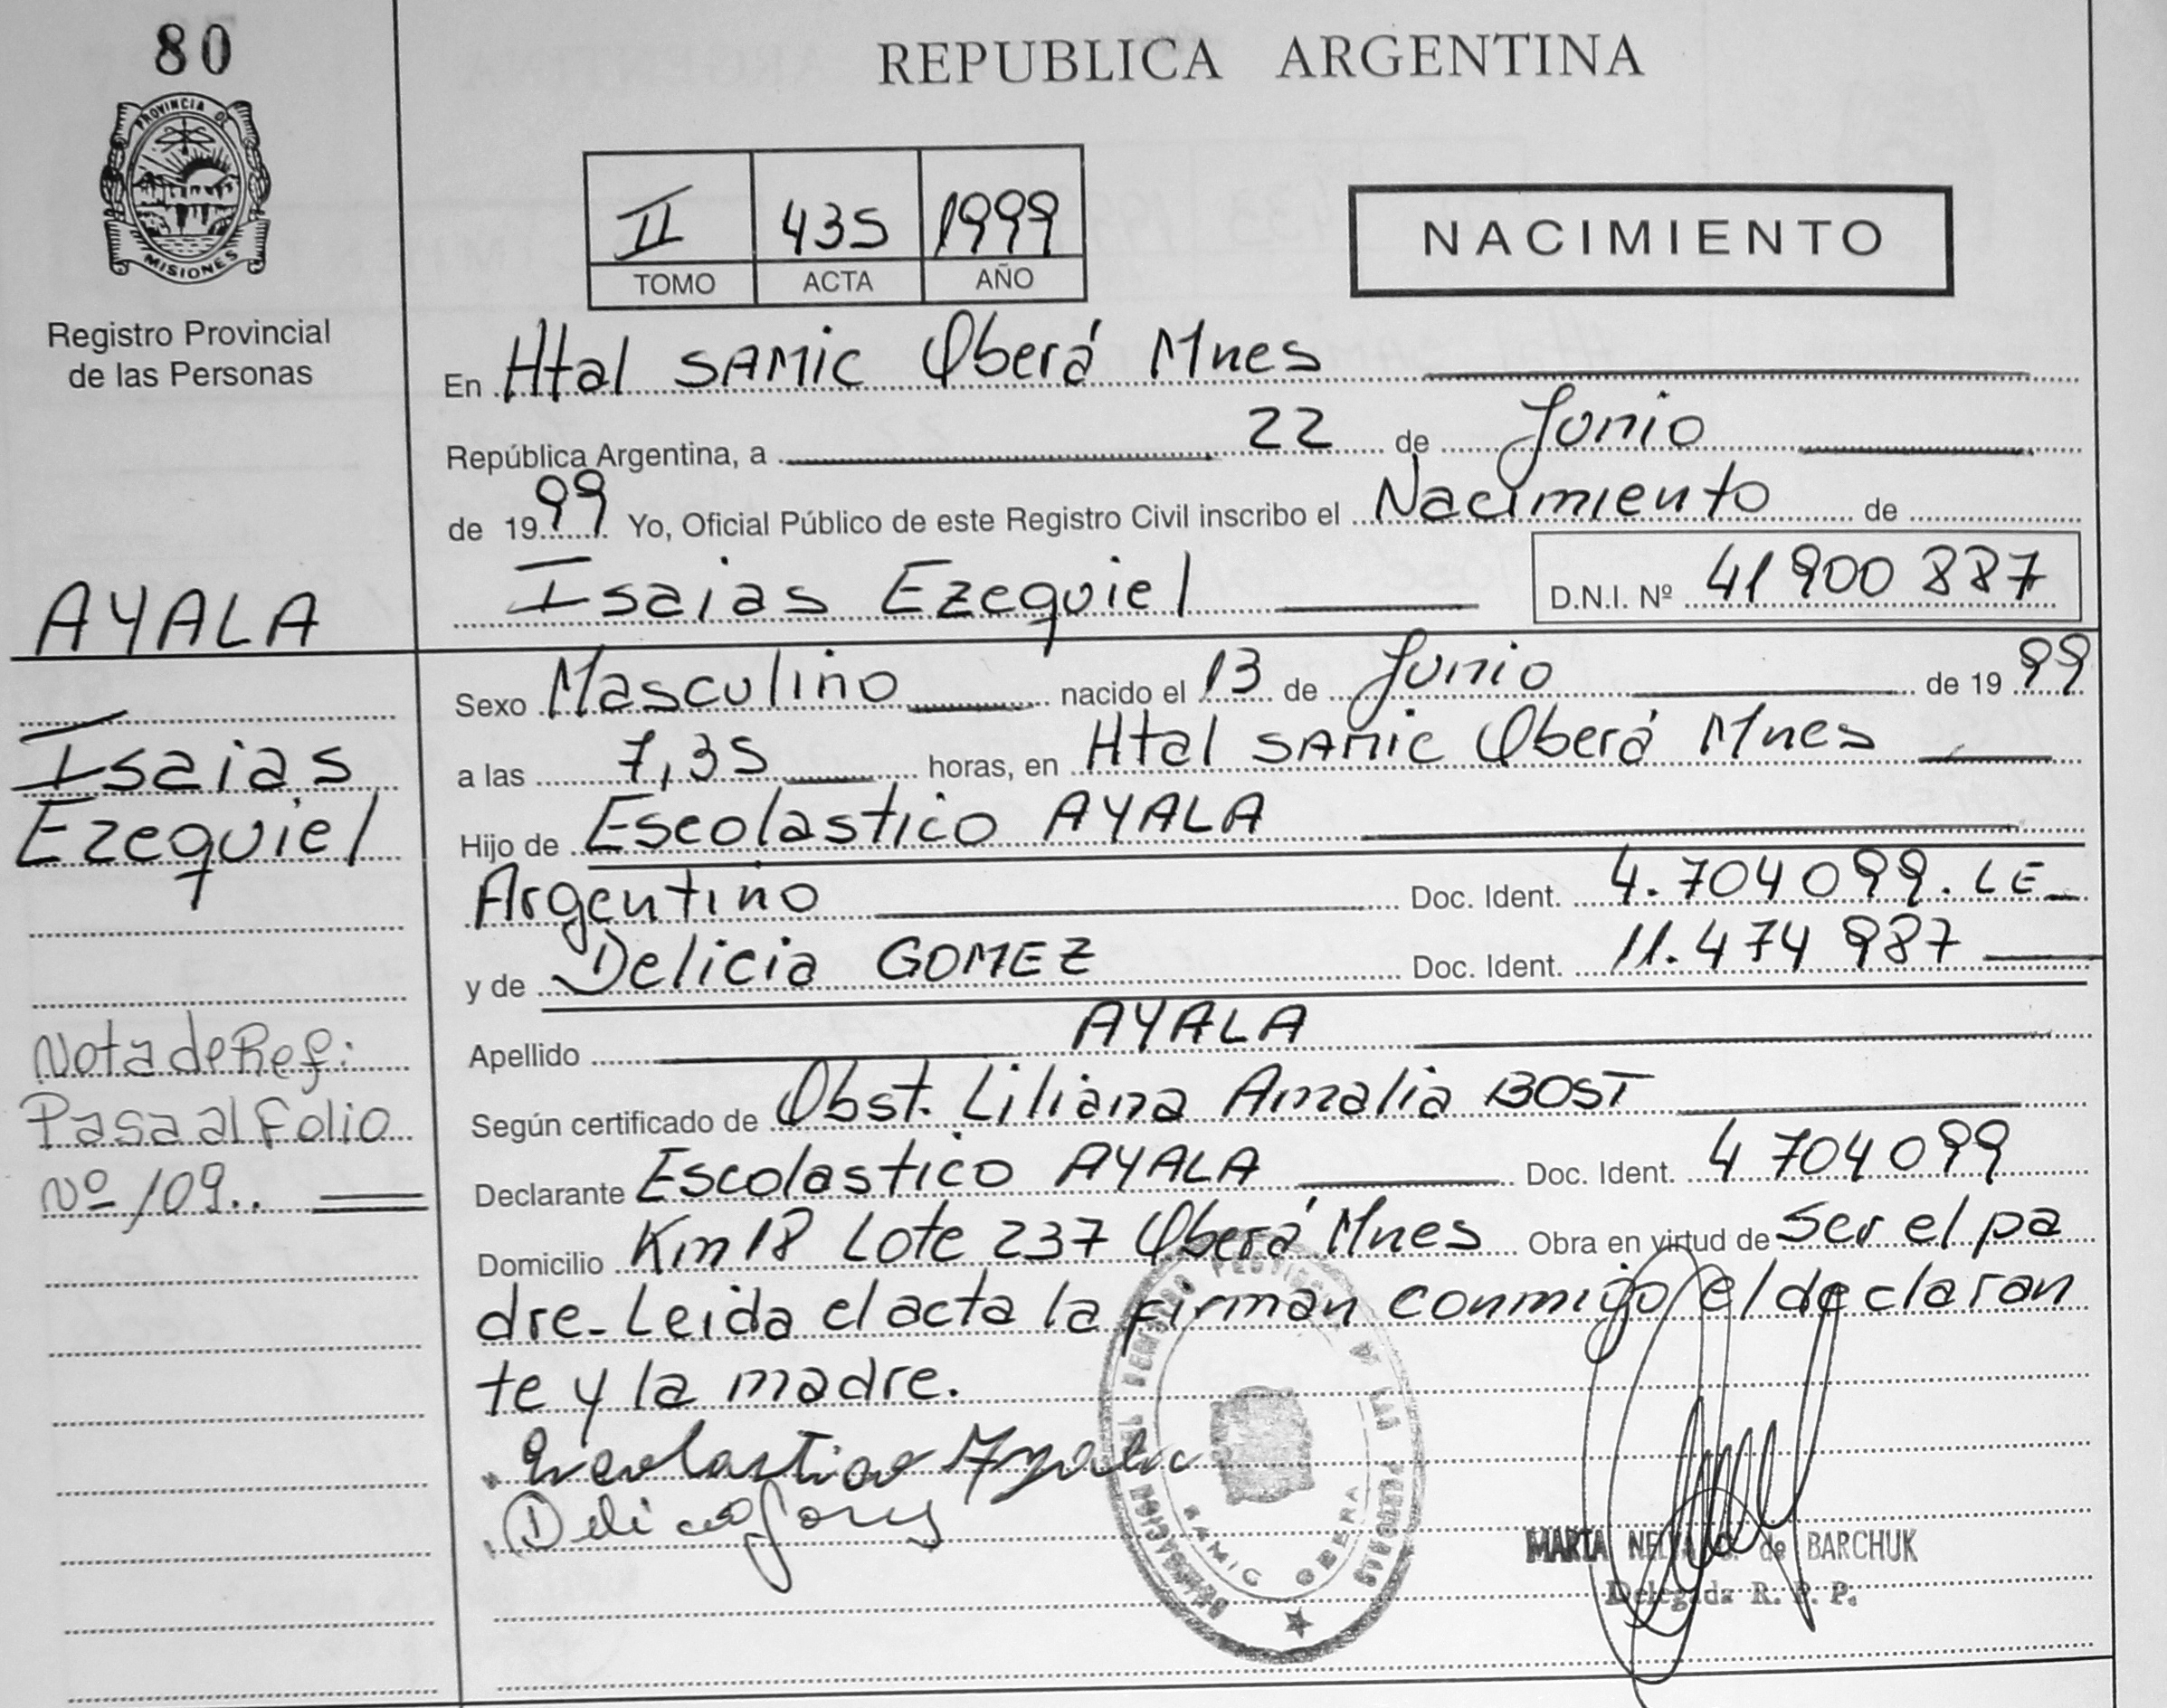 80
PROVINCIA DE
MISIONES
Registro Provincial
de las Personas
REPUBLICA ARGENTINA
II 435 1999
TOMO ACTA AÑO
NACIMIENTO
En Htal SAMIC Oberá Mnes
República Argentina, a 22 de Junio
de 1999 Yo, Oficial Público de este Registro Civil inscribo el Nacimiento de
Isaias Ezequiel D.N.I. Nº 41 900 887
AYALA
Isaias
Ezequiel
Nota de Ref:
Pasa al folio
Nº 109..
Sexo Masculino nacido el 13 de Junio de 1999
a las 7,35 horas, en Htal SAMIC Oberá Mnes
Hijo de Escolastico AYALA
Argentino Doc. Ident. 4.704099. LE
y de Delicia GOMEZ Doc. Ident. 11.474 987
Apellido AYALA
Según certificado de Obst. Liliana Amalia BOST
Declarante Escolastico AYALA Doc. Ident. 4 704099
Domicilio Km 18 Lote 237 Oberá Mnes Obra en virtud de ser el pa
dre_ Leida el acta la firman conmigo el declaran
te y la madre.
Escolastico Ayala
SAMIC OBERA
MARTA de BARCHUK
Delegada R. P. P.